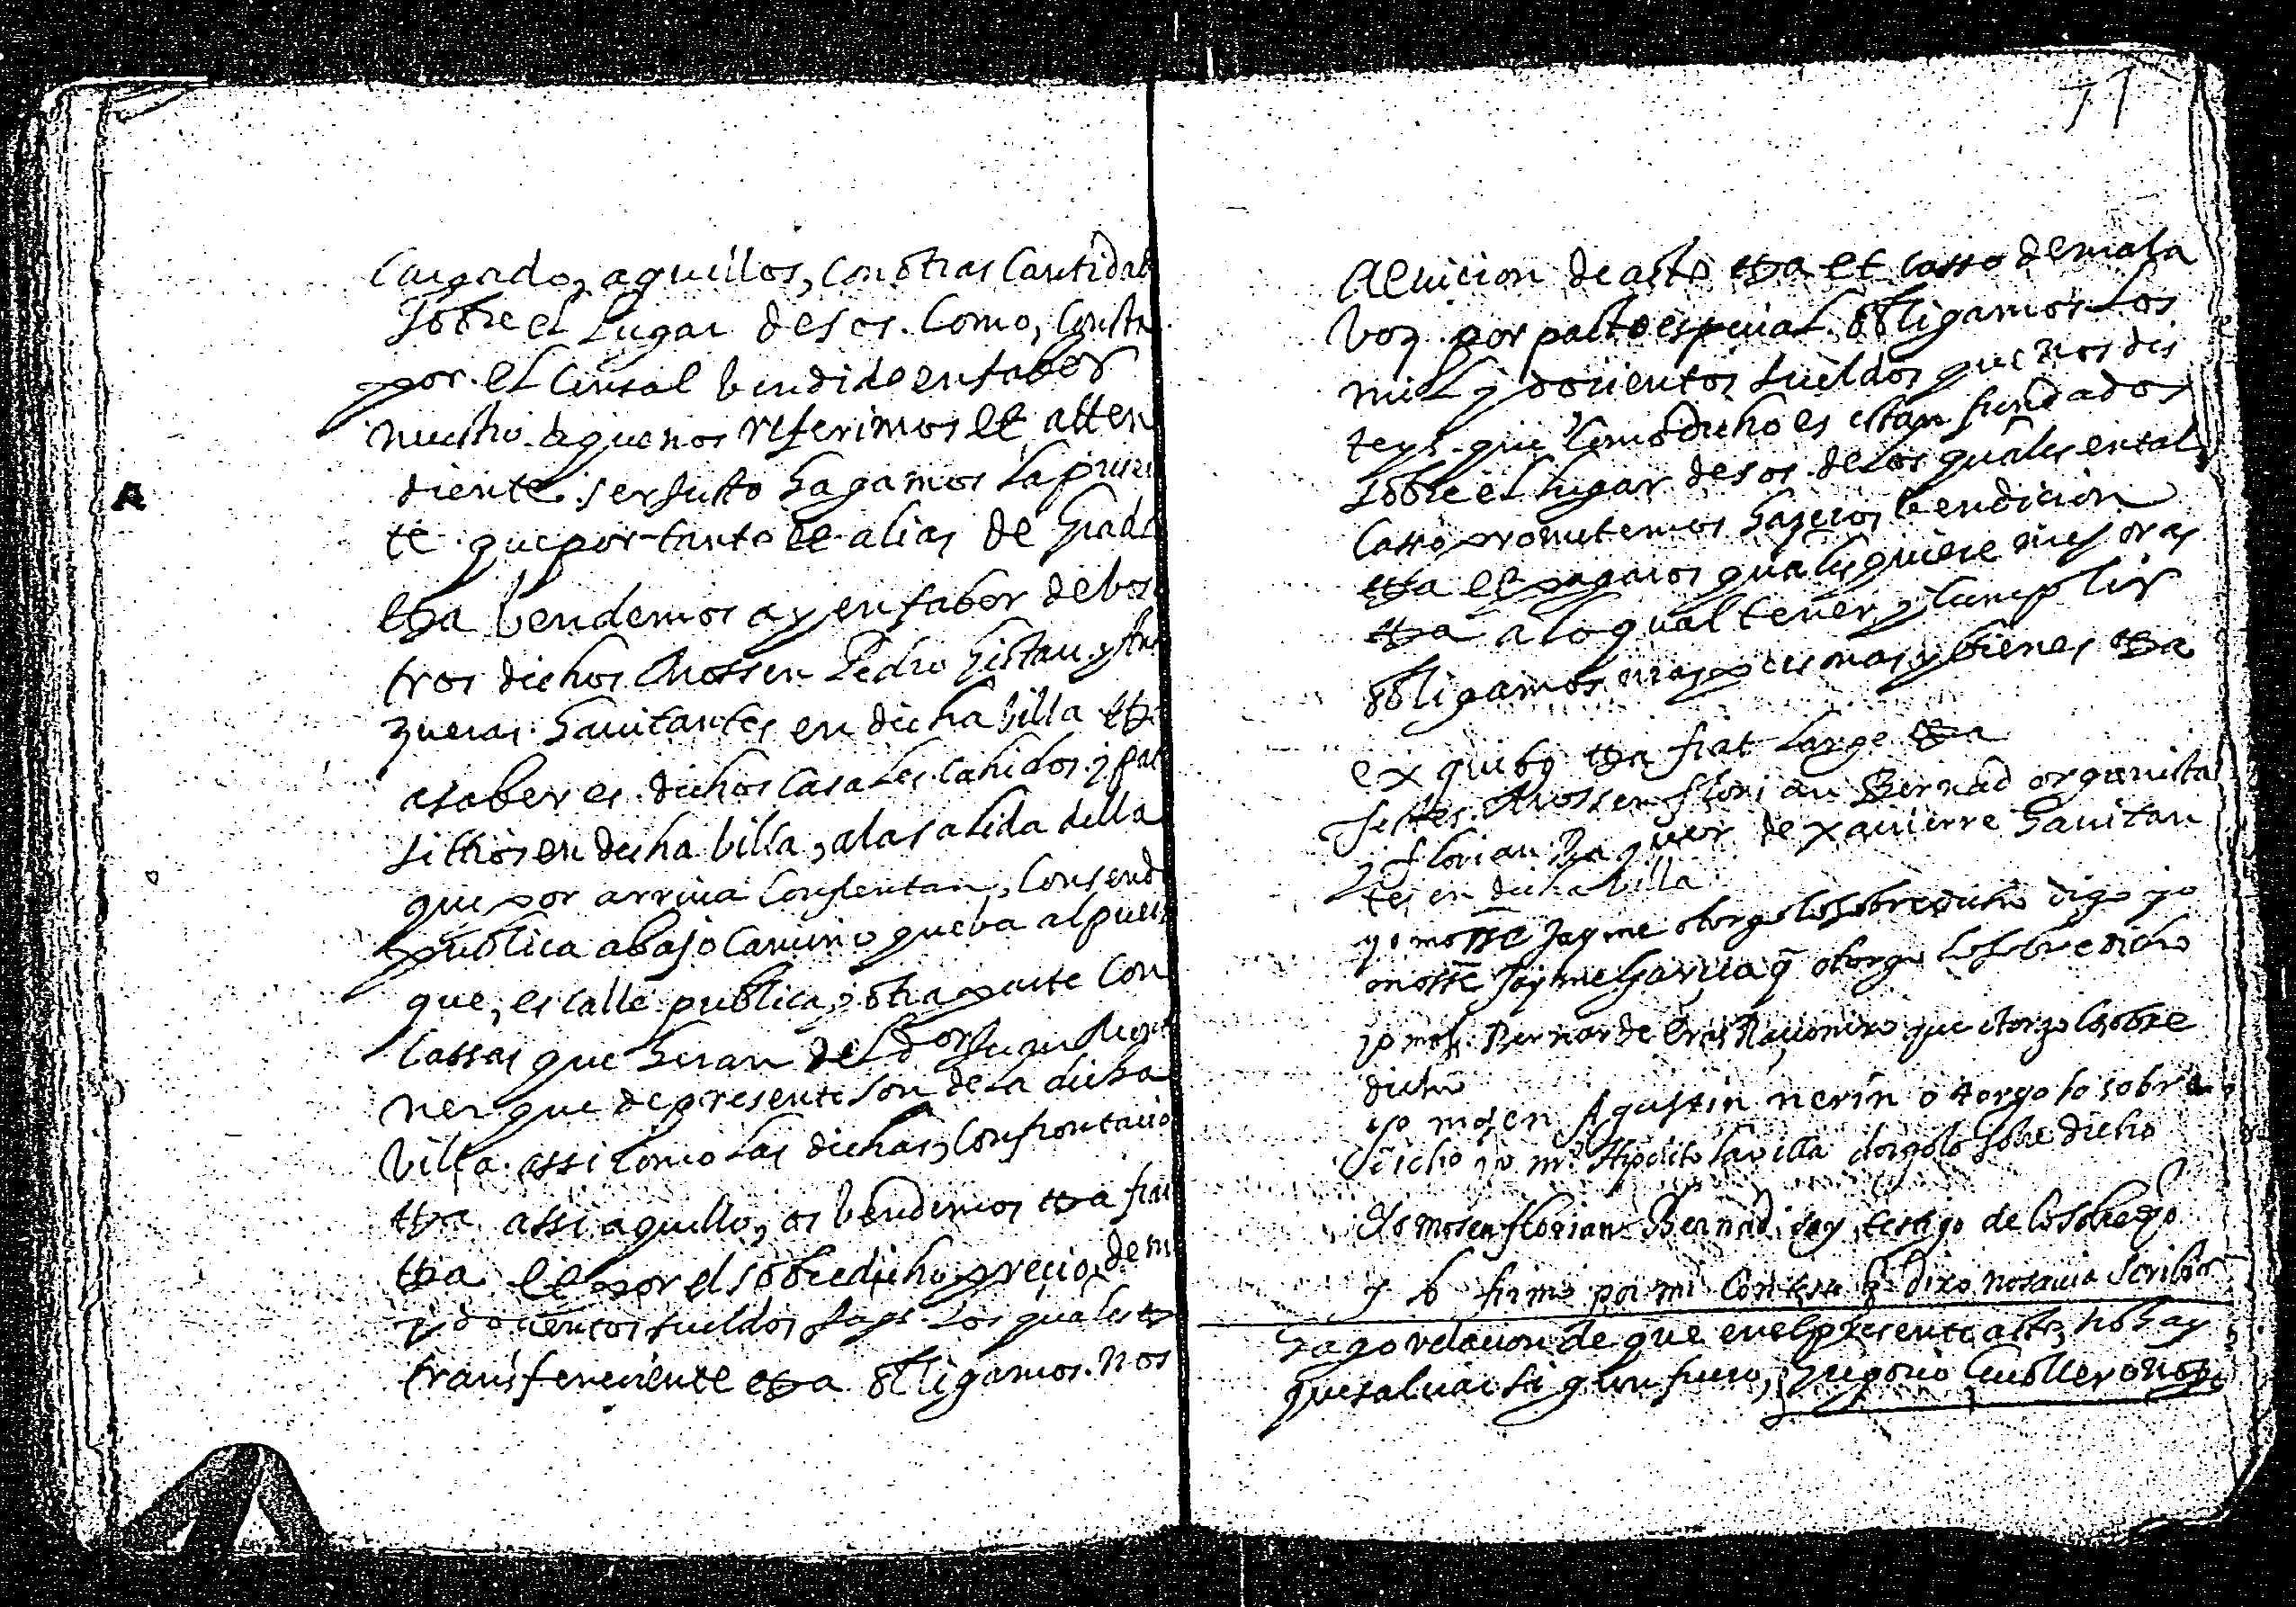 Cargado, aquellos, con otras Cantidad
sobre el Lugar de sos. Como, Consta
por. el Censal bendido en fabor
nuestro. a que nos referimos et atten
diente ser justo hagamos la presen
te que por tanto et alias de Grado
etta bendemos a y en fabor de bos
tros dichos Mossen Pedro Gistau y
zueras hauitantes en dicha billa etta
a saber es. dichos Casales. Cahidos. y
sitios en dicha billa, a la salida della
que por arriua Confrentan, Con senda
publica abajo Camino que ba al puen
que, es calle publica, y otra parte Con
Cassas que heran del
ner que de presente son de la dicha
Villa. assi como las dichas, Confrontacio
etta assi aquello, os bendemos etta
etta et por el sobredicho precio, de m
y docientos sueldos Jaqs. Los quales
transfereciente etta obligamos. nos
71
A euicion de acto etta et casso de mala
Voz por pacto especial obligamos Los
mil y docientos sueldos que nos dis
teys. que como dicho es estan fundados
sobre el lugar de sos. de los quales en tal
Casso prometemos hazeros bendicion
etta et pagaros quales quiere mesoras
etta a lo qual tener y Cumplir
obligamos nras personas y bienes etta
ex quibus etta fiat large etta
Testes. Mossen Florian Bernad organista
y Florian Baquer de xauierre hauitan
tes en dicha billa
yo mosse Jayme otorgo lo sobredicho digo yo
mosse Jayme Garcia q otorgo lo sobredicho
yo mos. Bernar de Eras Racionero que otorgo lo sobre
dicho
yo mosen Agustin nerin otorgo lo sobre
dicho yo mn Hipolito lavilla otorgo lo sobre dicho
Yo mosen florian Bernad soy testigo de lo sobredho
y lo firmo por mi Con teste q dixo no sauia scribir
Hago relacion de que en el presente acto, no hay
que saluar sigun fuero, Gregorio